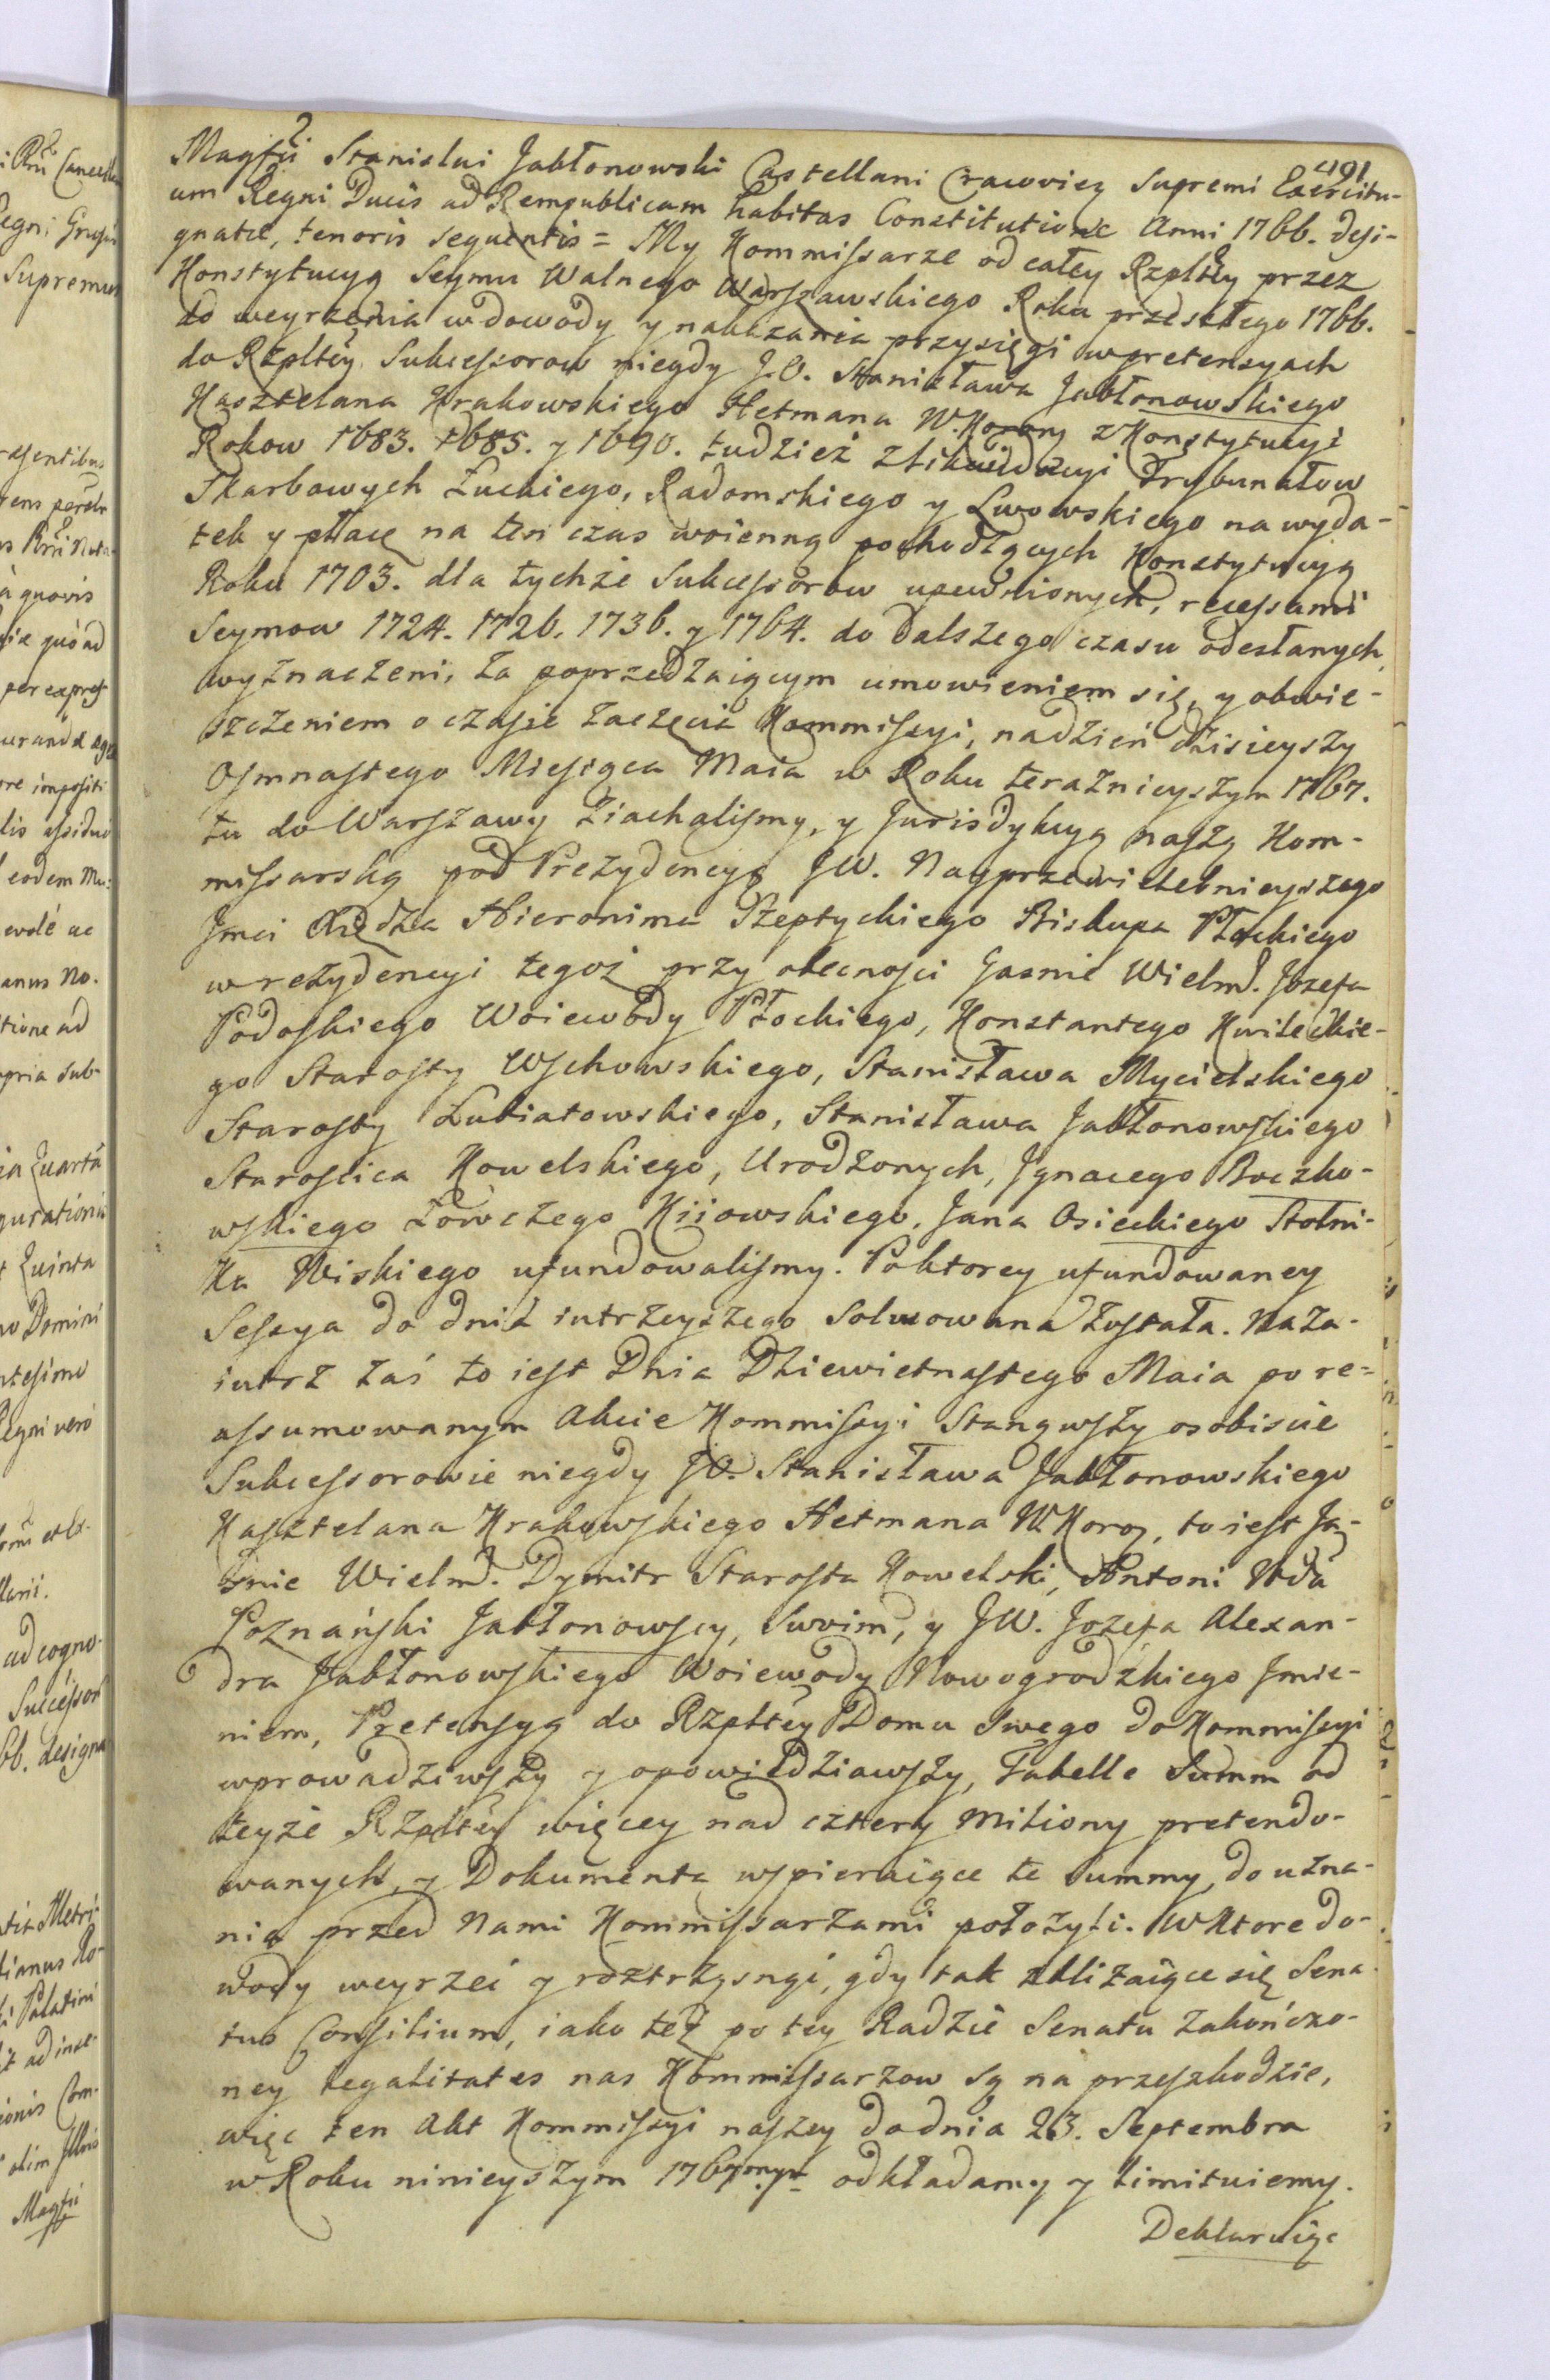 491
Magfci Stanislai Jabłonowski Castellani Cracovien Supremi Exercitu-
um Regni Ducis ad Rempublicam habitas Constitutione Anni 1766. desi-
gnatæ, tenoris sequentis = My Kommissarze od całey Rzpltey przez
Konstytucyą Seymu Walnego Warszawskiego Roku przeszłego 1766.
do weyrzenia w dowody y nakazania przysięgi w pretensyach
do Rzpltey Sukcessorow niegdy J.O. Stanisława Jabłonowskiego
Kasztelana Krakowskiego Hetmana W. Korony z Konstytucyi
Rokow 1683. 1685. y 1690. tudzież z likwidacyi Trybunałow
Skarbowych Łuckiego, Radomskiego y Lwowskiego na wyda-
tek y płacę na ten czas woienną pochodzących Konstytucyą
Roku 1703. dla tychże Sukcessorow upewnionych, recessami
Seymow 1724. 1726. 1736. y 1764. do dalszego czasu odesłanych,
wyznaczeni, za poprzedzaiącym umowieniem się, y obwie-
szczeniem o czasie zaczęcia Kommissyi, na dzień dzisieyszy
Osmnastego Miesiąca Maia w Roku teraznieyszym 1767.
tu do Warszawy ziachalismy, y Jurisdykcyą naszą Kom-
missarską pod Prezydencyą JW. Nayprzewielebnieyszego
Jmci Xiędza Hieronima Szeptyckiego Biskupa Płockiego
w rezydencyi tegoż przy obecności Jasnie Wielm. Jozefa
Podoskiego Woiewody Płockiego, Konstantego Kwileckie-
go Starosty Wschowskiego, Stanisława Mycielskiego
Starosty Lubiatowskiego, Stanisława Jabłonowskiego
Starościca Kowelskiego, Urodzonych, Jgnacego Boczko-
wskiego Łowczego Kiiowskiego, Jana Osieckiego Stolni-
ka Wiskiego ufundowalismy. Po ktorey ufundowaney
Sessya do dnia iutrzeyszego Solwowana została. Naza-
iutrz zaś to iest Dnia Dziewietnastego Maia po re-
assumowanym Akcie Kommissyi Stanąwszy osobiscie
Sukcessorowie niegdy JO. Stanisława Jabłonowskiego
Kasztelana Krakowskiego Hetmana W. Koro, to iest Ja-
śnie Wielm. Dymitr Starosta Kowelski, Antoni Wda
Poznański Jabłonowscy, Swoim, y JW. Jozefa Alexan-
dra Jabłonowskiego Woiewody Nowogrodzkiego Jmie-
niem, Pretensyą do Rzpltey Domu Swego do Kommissyi
wprowadziwszy y opowiedziawszy, Tabelle Summ od
teyże Rzpltey więcey nad cztery miliony pretendo-
wanych, y Dokumenta wspieraiące te Summy, do uzna-
nia przed Nami Kommissarzami położyli. W ktore do-
wody weyrzeć y roztrzysnąć, gdy tak zbliżaiące się Sena-
tus Consilium, iako też po tey Radzie Senatu zakończo-
ney legalitates nas Kommissarzow są na przeszkodzie,
więc ten Akt Kommissyi naszey do dnia 23. Septembra
w Roku ninieyszym 1767mym odkładamy y limituiemy.
Deklaruiąc